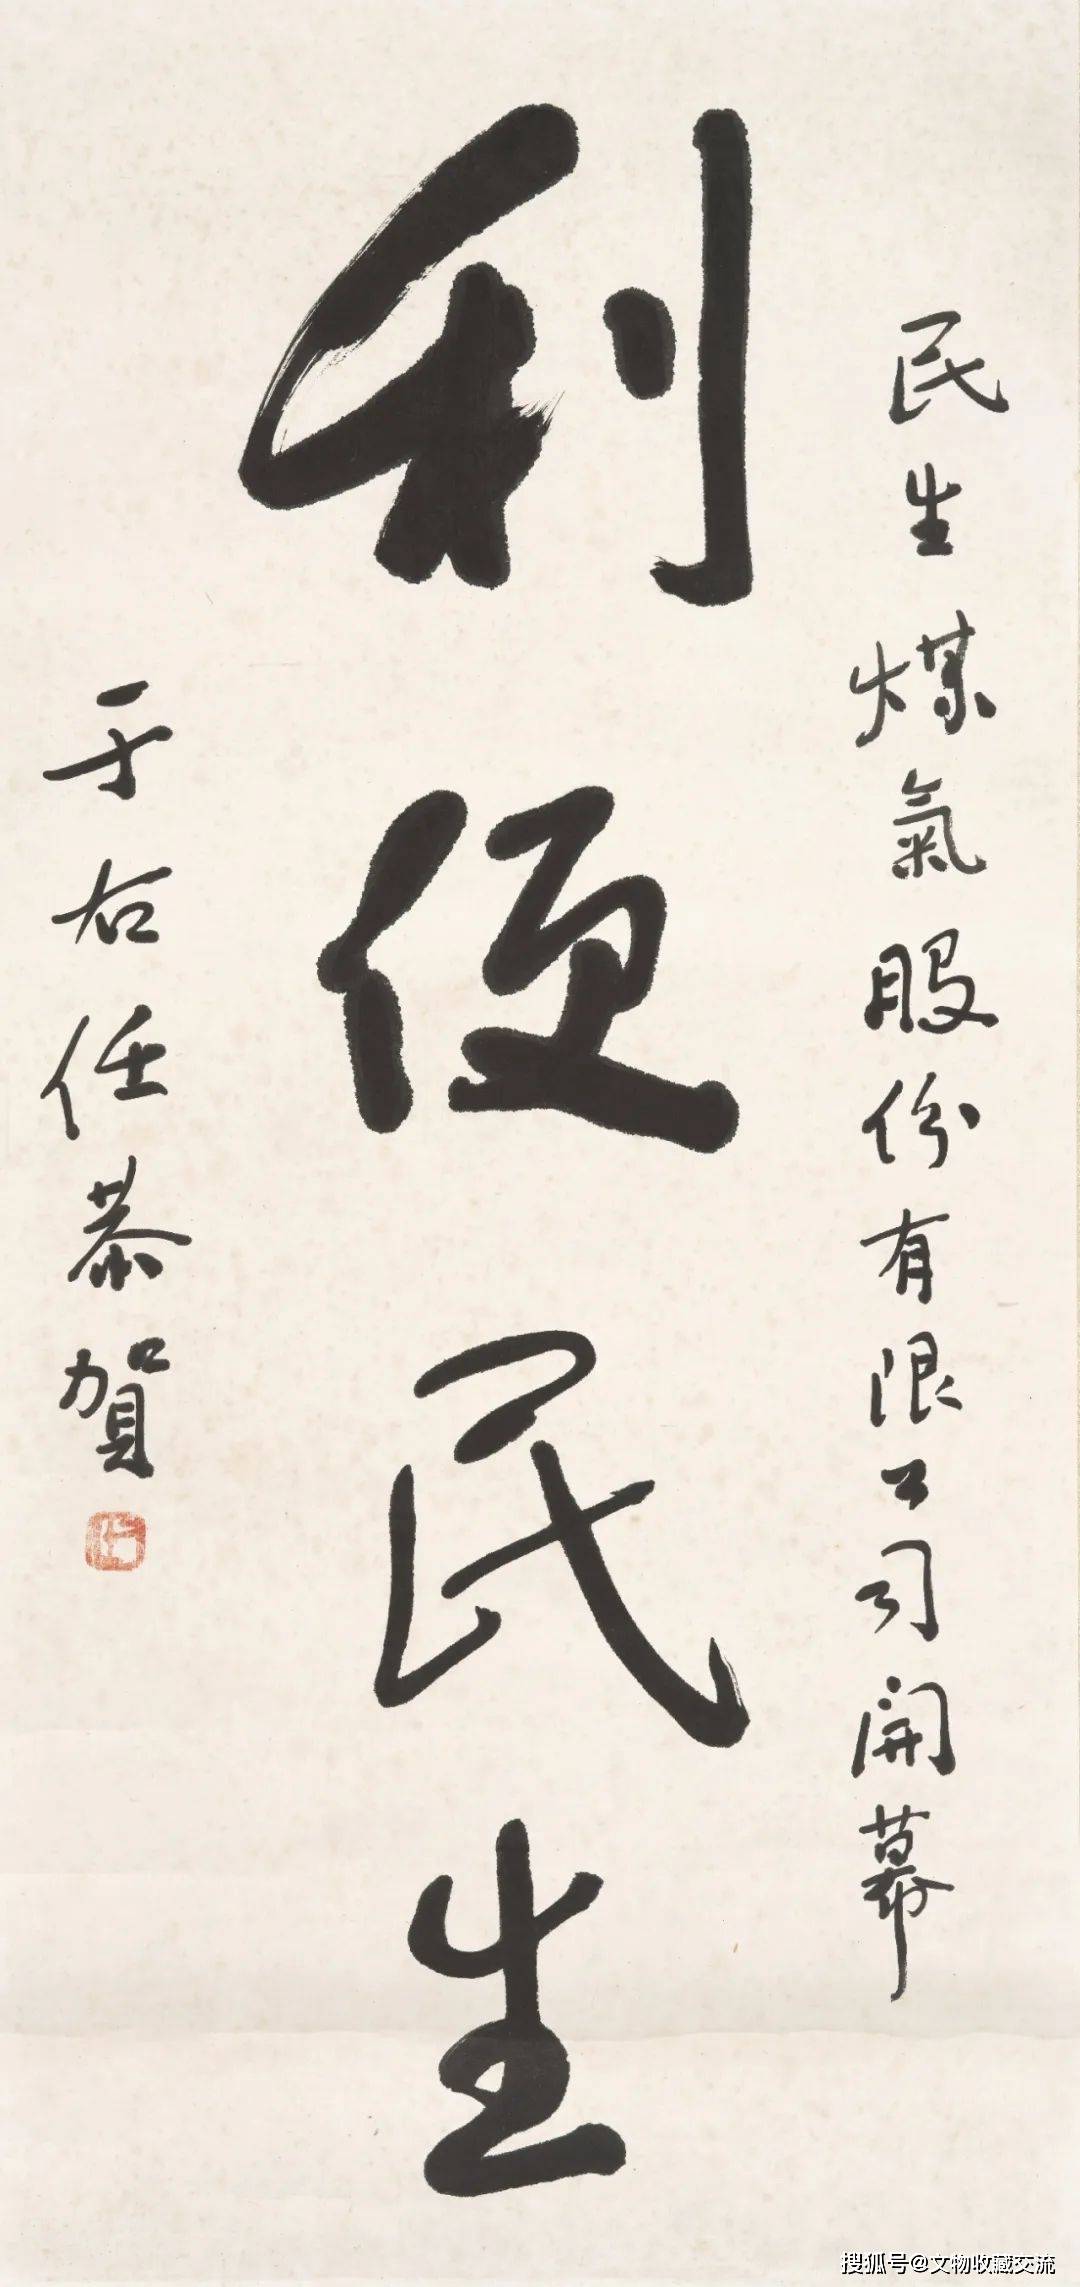 民生煤氣股份有限公司開幕
利便民生
于右任恭賀
搜狐号@文物收藏交流